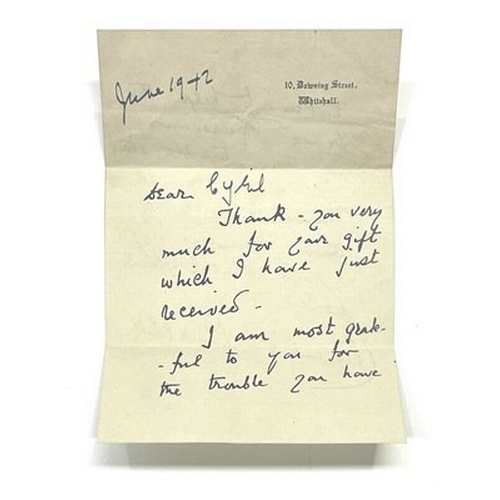 June 1942
10, Downing Street,
Whitehall.
Dear Cyril
Thank-you very
much for your gift
which I have just
received -
I am most grate-
-ful to you for
the trouble you have